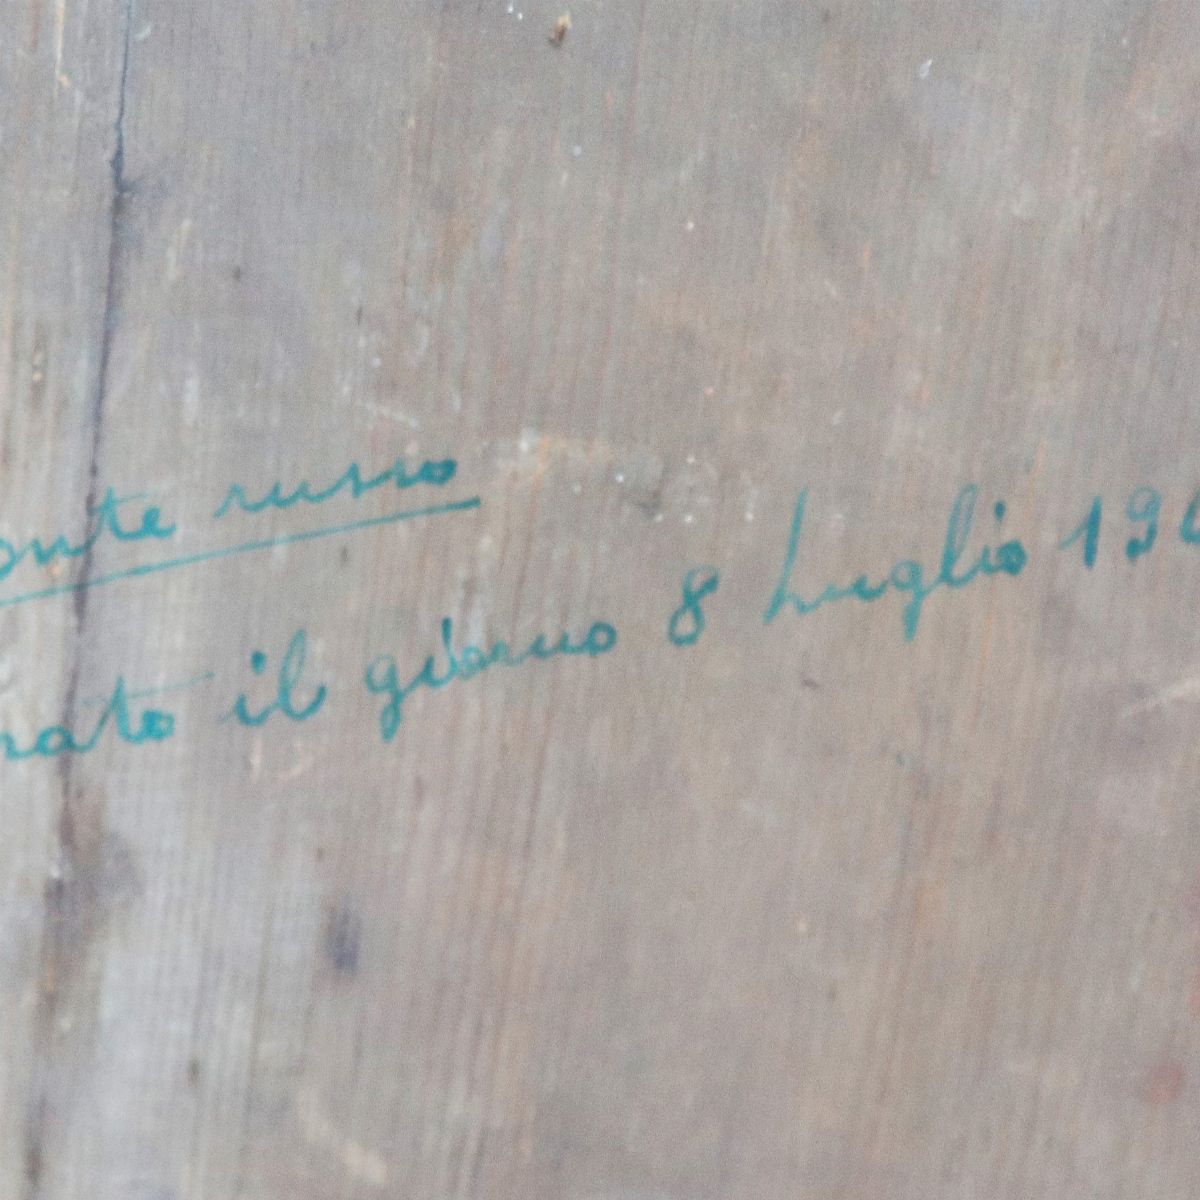 onte russo
rato il giorno 8 Luglio 194